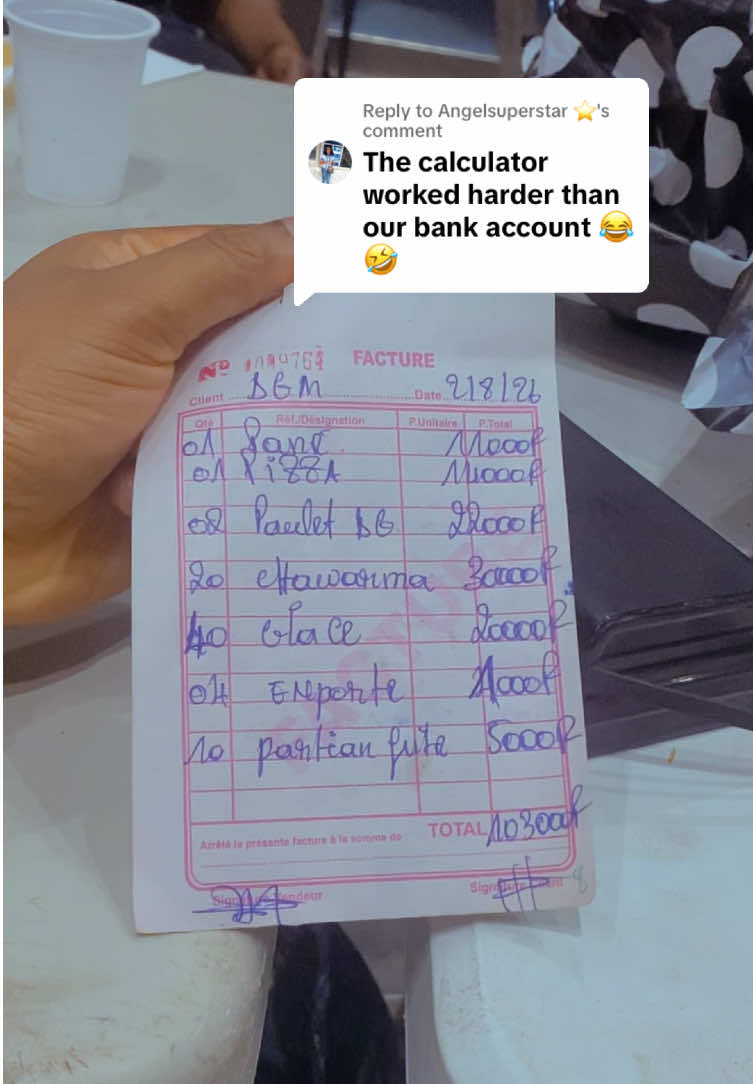 Reply to Angelsuperstar ⭐'s
comment
The calculator
worked harder than
our bank account 😂
🤣
Nº FACTURE
Client DGM Date 2/8/26
Qté Réf./Désignation P.Unitaire P.Total
01 11000f
01 Pizza 11000f
02 Paulet DG 22000f
20 chawarma 30000f
40 Glace 20000f
04 Emporte 4000f
10 partian fute 5000f
TOTAL 103000f
Arrêté la présente facture à la somme de
Signature Vendeur Signature Client